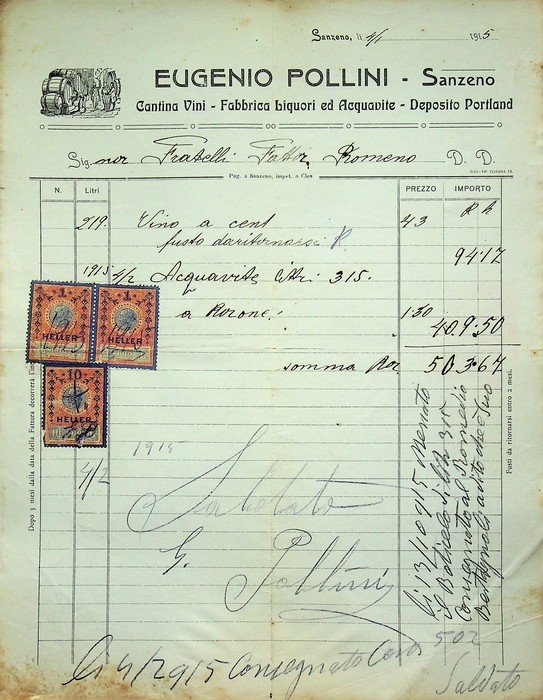 Sanzeno, li 4/1 1915
EUGENIO POLLINI - Sanzeno
Cantina Vini - Fabbrica Liquori ed Acquavite - Deposito Portland
Signor Fratelli Romeno D. D.
Pag. a Sanzeno, impet. a Cles
N. Litri PREZZO IMPORTO
219. Vino a cent 43
fusto da ritornarsi R. 94.17
1915 4/2 Acquavite Litri 315.
a Corone: 1.30 409.50
somma 503.67
1
HELLER
1
HELLER
10
HELLER
Dopo 3 mesi dalla data della Fattura decorrerà l'int
Fusti da ritornarsi entro 2 mesi.
1915
4/2
Saldato
G. Pollini
li 13/10 915
315
Consegnato al
li 4/2 915 Consegnato Cor. 502
Saldato